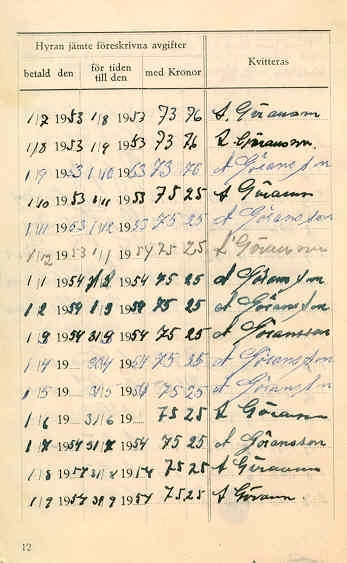 Hyran jämte föreskrivna avgifter
Kvitteras
betald den
för tiden till den
med Kronor
1/7 1953 1/8 1953 73 76 A. Göransson
1/8 1953 1/9 1953 73 76 A. Göransson.
1/9 1953 1/10 1953 73 76 A Göransson
1/10 1953 1/11 1953 75 25 A Göransson
1/11 1953 1/12 1953 75 25 A Göransson
1/12 1953 1/1 1954 75 25 A Göransson
1/1 1954 1954 75 25 A Göransson
1/2 1954 1/3 1954 75 25 A Göransson
1954 31/3 1954 75 25 A Göransson
1/4 19 30/4 1954 75 25 A Göransson
1/5 19 31/5 1954 75 25 A Göransson
1/6 19 19 75 25 A Göransson
1/7 1954 31/7 1954 75 25 A Göransson
1/8 1954 31/8 1954 75 25 A Göransson
1/9 1954 1954 75 25 A Göransson.
12